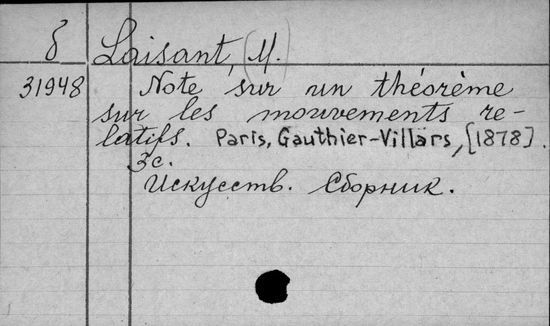 δ Laisant, M.
31948 Note sur un théorème
sur les mouvements re-
latifs. Paris, Gauthier-Villars, [1878].
3c.
Искусств. Сборник.